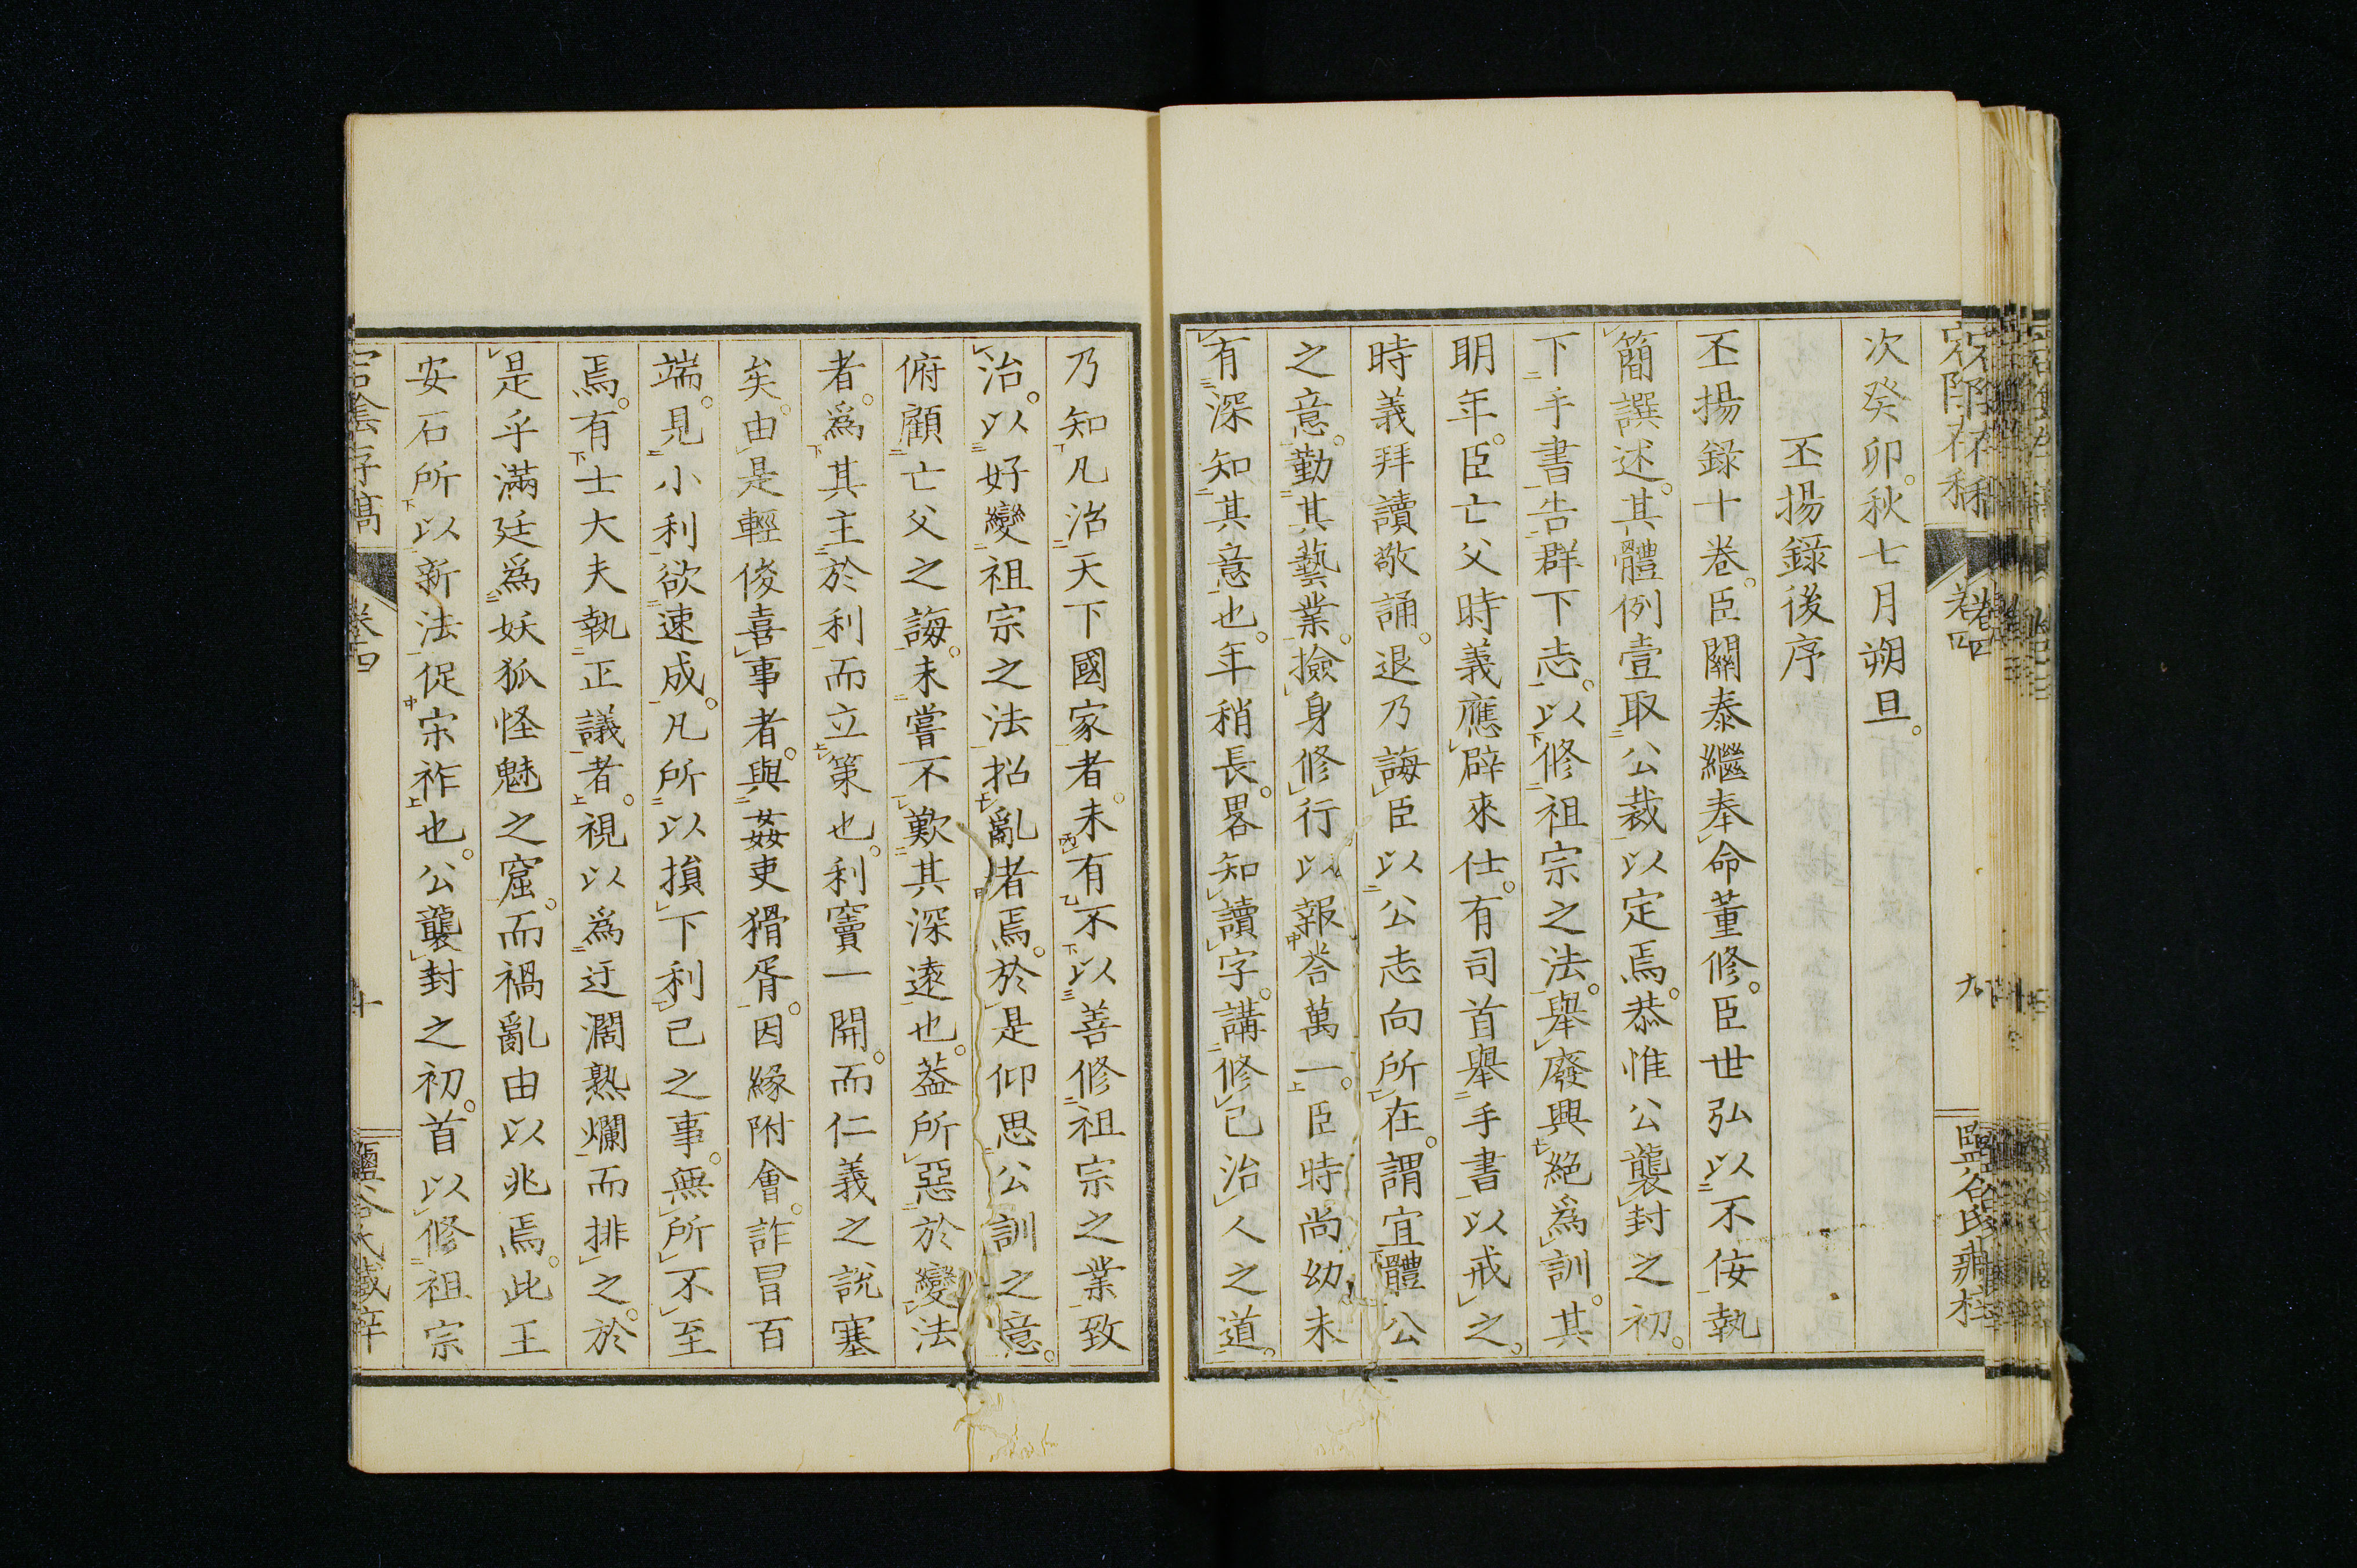 次癸卯。秋七月朔旦。
丕揚錄後序
丕揚錄十卷。臣關泰繼奉命董修。臣世弘以不侫執
簡譔述。其體例壹取公裁以定焉。恭惟公襲封之初。
下手書告群下志。以修祖宗之法。舉廢興絕爲訓。其
明年。臣亡父時義應辟來仕。有司首舉手書以戒之。
時義拜讀敬誦。退乃誨臣以公志向所在。謂宜體公
之意。勤其藝業。撿身修行以報答萬一。臣時尚幼未
有深知其意也。年稍長。畧知讀字。講修己治人之道。
乃知凡治天下國家者。未有不以善修祖宗之業致
治。以好變祖宗之法招亂者焉。於是仰思公訓之意。
俯顧亡父之誨。未嘗不歎其深遠也。葢所惡於變法
者。爲其主於利而立策也。利竇一開。而仁義之說塞
矣。由是輕俊喜事者。與姦吏猾胥。因緣附會。詐冒百
端。見小利欲速成。凡所以損下利己之事。無所不至
焉。有士大夫執正議者。視以爲迂濶熟爛而排之。於
是乎滿廷爲妖狐怪魅之窟。而禍亂由以兆焉。此王
安石所以新法促宗祚也。公襲封之初。首以修祖宗
卷四
十